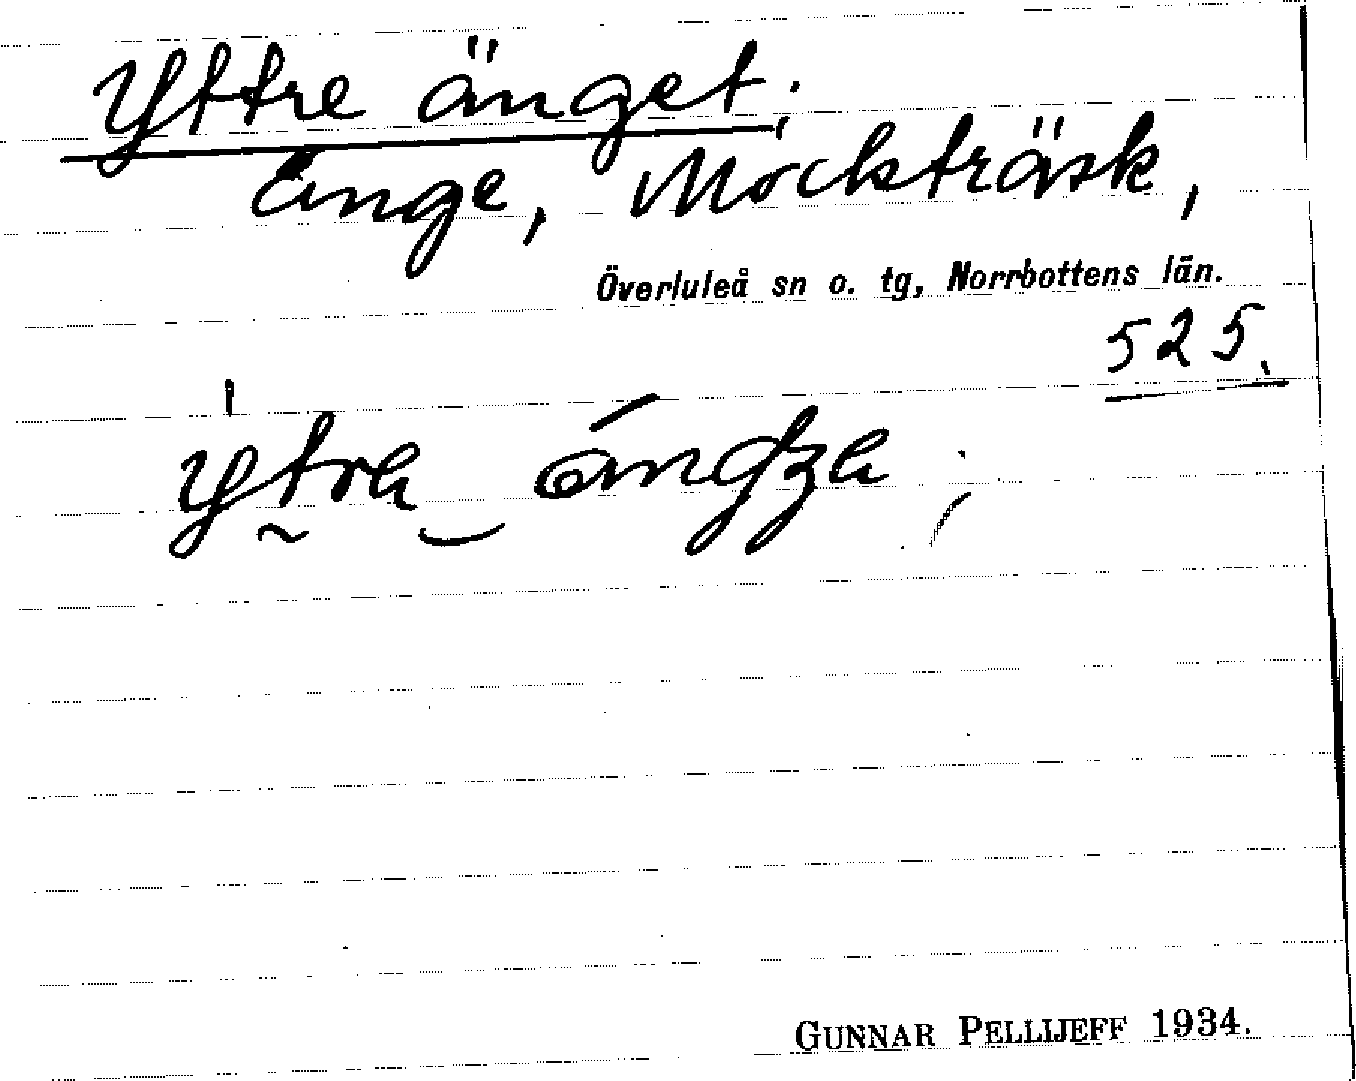 Yttre änget.
Änge, Mockträsk,
Överluleå sn o. tg, Norrbottens län.
525.
GUNNAR PELLIJEFF 1934.